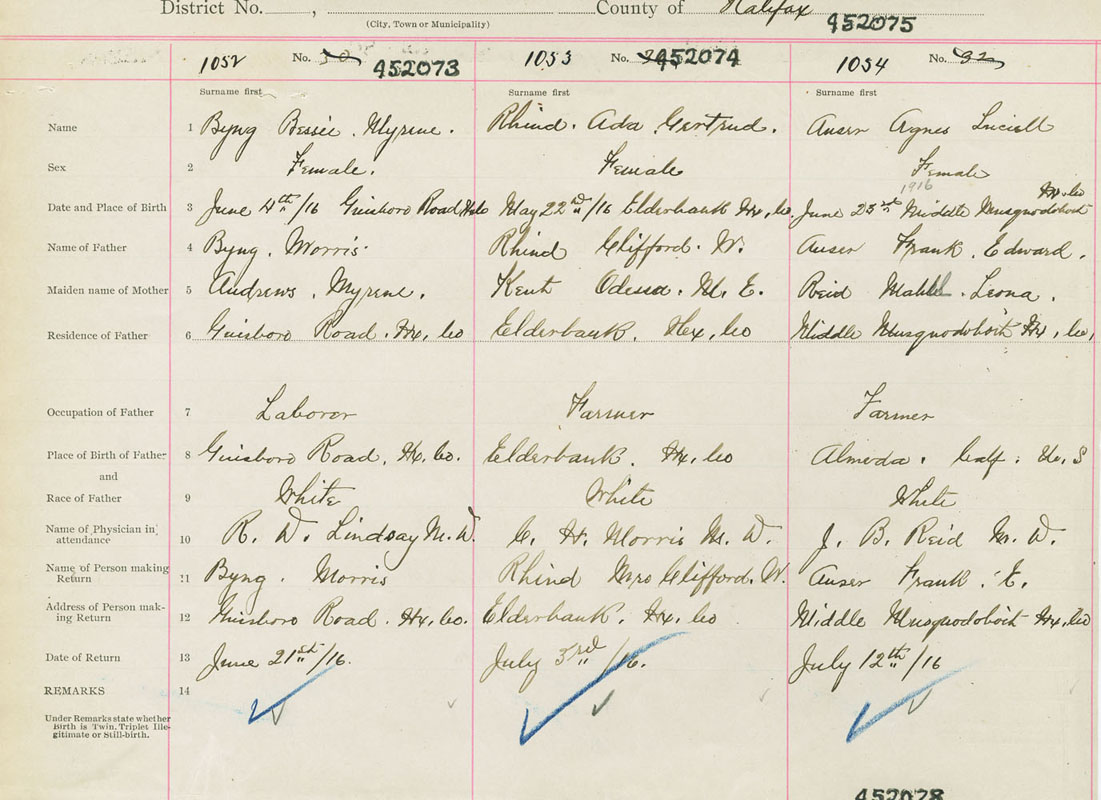 District No. , County of Halifax
(City, Town or Municipality)
452075
1052 No. 30 452073 1053 No. 452074 1054 No. 32
Surname first Surname first Surname first
Name 1 Byng Bessie. Myrene. Rhind. Ada Gertrud. Auser Agnes Luciell
Sex 2 Female. Female Female
1916
Hx, Co
Date and Place of Birth 3 June 4th/16 Guisboro Road, May 22nd/16 Elderbank Hx, Co, June 23rd Middle Musquodoboit
Name of Father 4 Byng. Morris. Rhind Clifford. W. Auser Frank. Edward.
Maiden name of Mother 5 Andrews, Myrene. Kent Odessa. M. E. Reid Leona.
Residence of Father 6 Guisboro Road. Hx, Co Elderbank. Hex, Co Middle Musquodoboit Hx, Co,
Occupation of Father 7 Laboror Farmer Farmer
Place of Birth of Father 8 Guisboro Road, Hx, Co. Elderbank. Hx, Co Almeda. Calf. U. S
and
Race of Father 9 White White White
Name of Physician in attendance 10 R. D. Lindsay M. D. C. H. Morris M. D. J. B. Reid M. D.
Name of Person making Return 11 Byng. Morris Rhind Mrs Clifford. W. Auser Frank. E.
Address of Person making Return 12 Guisboro Road. Hx, Co. Elderbank. Hx, Co Middle Musquodoboit Hx, Co
Date of Return 13 June 21st/16. July 3rd/16. July 12th/16
REMARKS 14
Under Remarks state whether
Birth is Twin, Triplet Ille-
gitimate or Still-birth.
452078